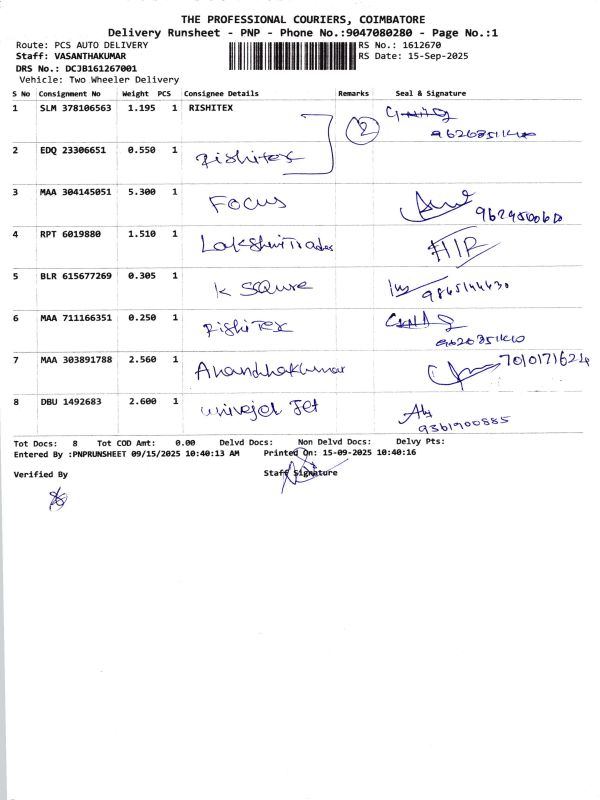 THE PROFESSIONAL COURIERS, COIMBATORE
Delivery Runsheet - PNP - Phone No.:9047080280 - Page No.:1
Route: PCS AUTO DELIVERY RS No.: 1612670
Staff: VASANTHAKUMAR RS Date: 15-Sep-2025
DRS No.: DCJB161267001
Vehicle: Two Wheeler Delivery
S No Consignment No Weight PCS Consignee Details Remarks Seal & Signature
1 SLM 378106563 1.195 1 RISHITEX
2
2 EDQ 23306651 0.550 1 Rishitex
3 MAA 304145051 5.300 1 Focus
4 RPT 6019880 1.510 1 Lakshmi Trades
5 BLR 615677269 0.305 1 K SQure 9865144430
6 MAA 711166351 0.250 1 RishiTex
7 MAA 303891788 2.560 1 Anandhakumar 7010171624
8 DBU 1492683 2.600 1 Jet 9361900885
Tot Docs: 8 Tot COD Amt: 0.00 Delvd Docs: Non Delvd Docs: Delvy Pts:
Entered By :PNPRUNSHEET 09/15/2025 10:40:13 AM Printed On: 15-09-2025 10:40:16
Verified By Staff Signature